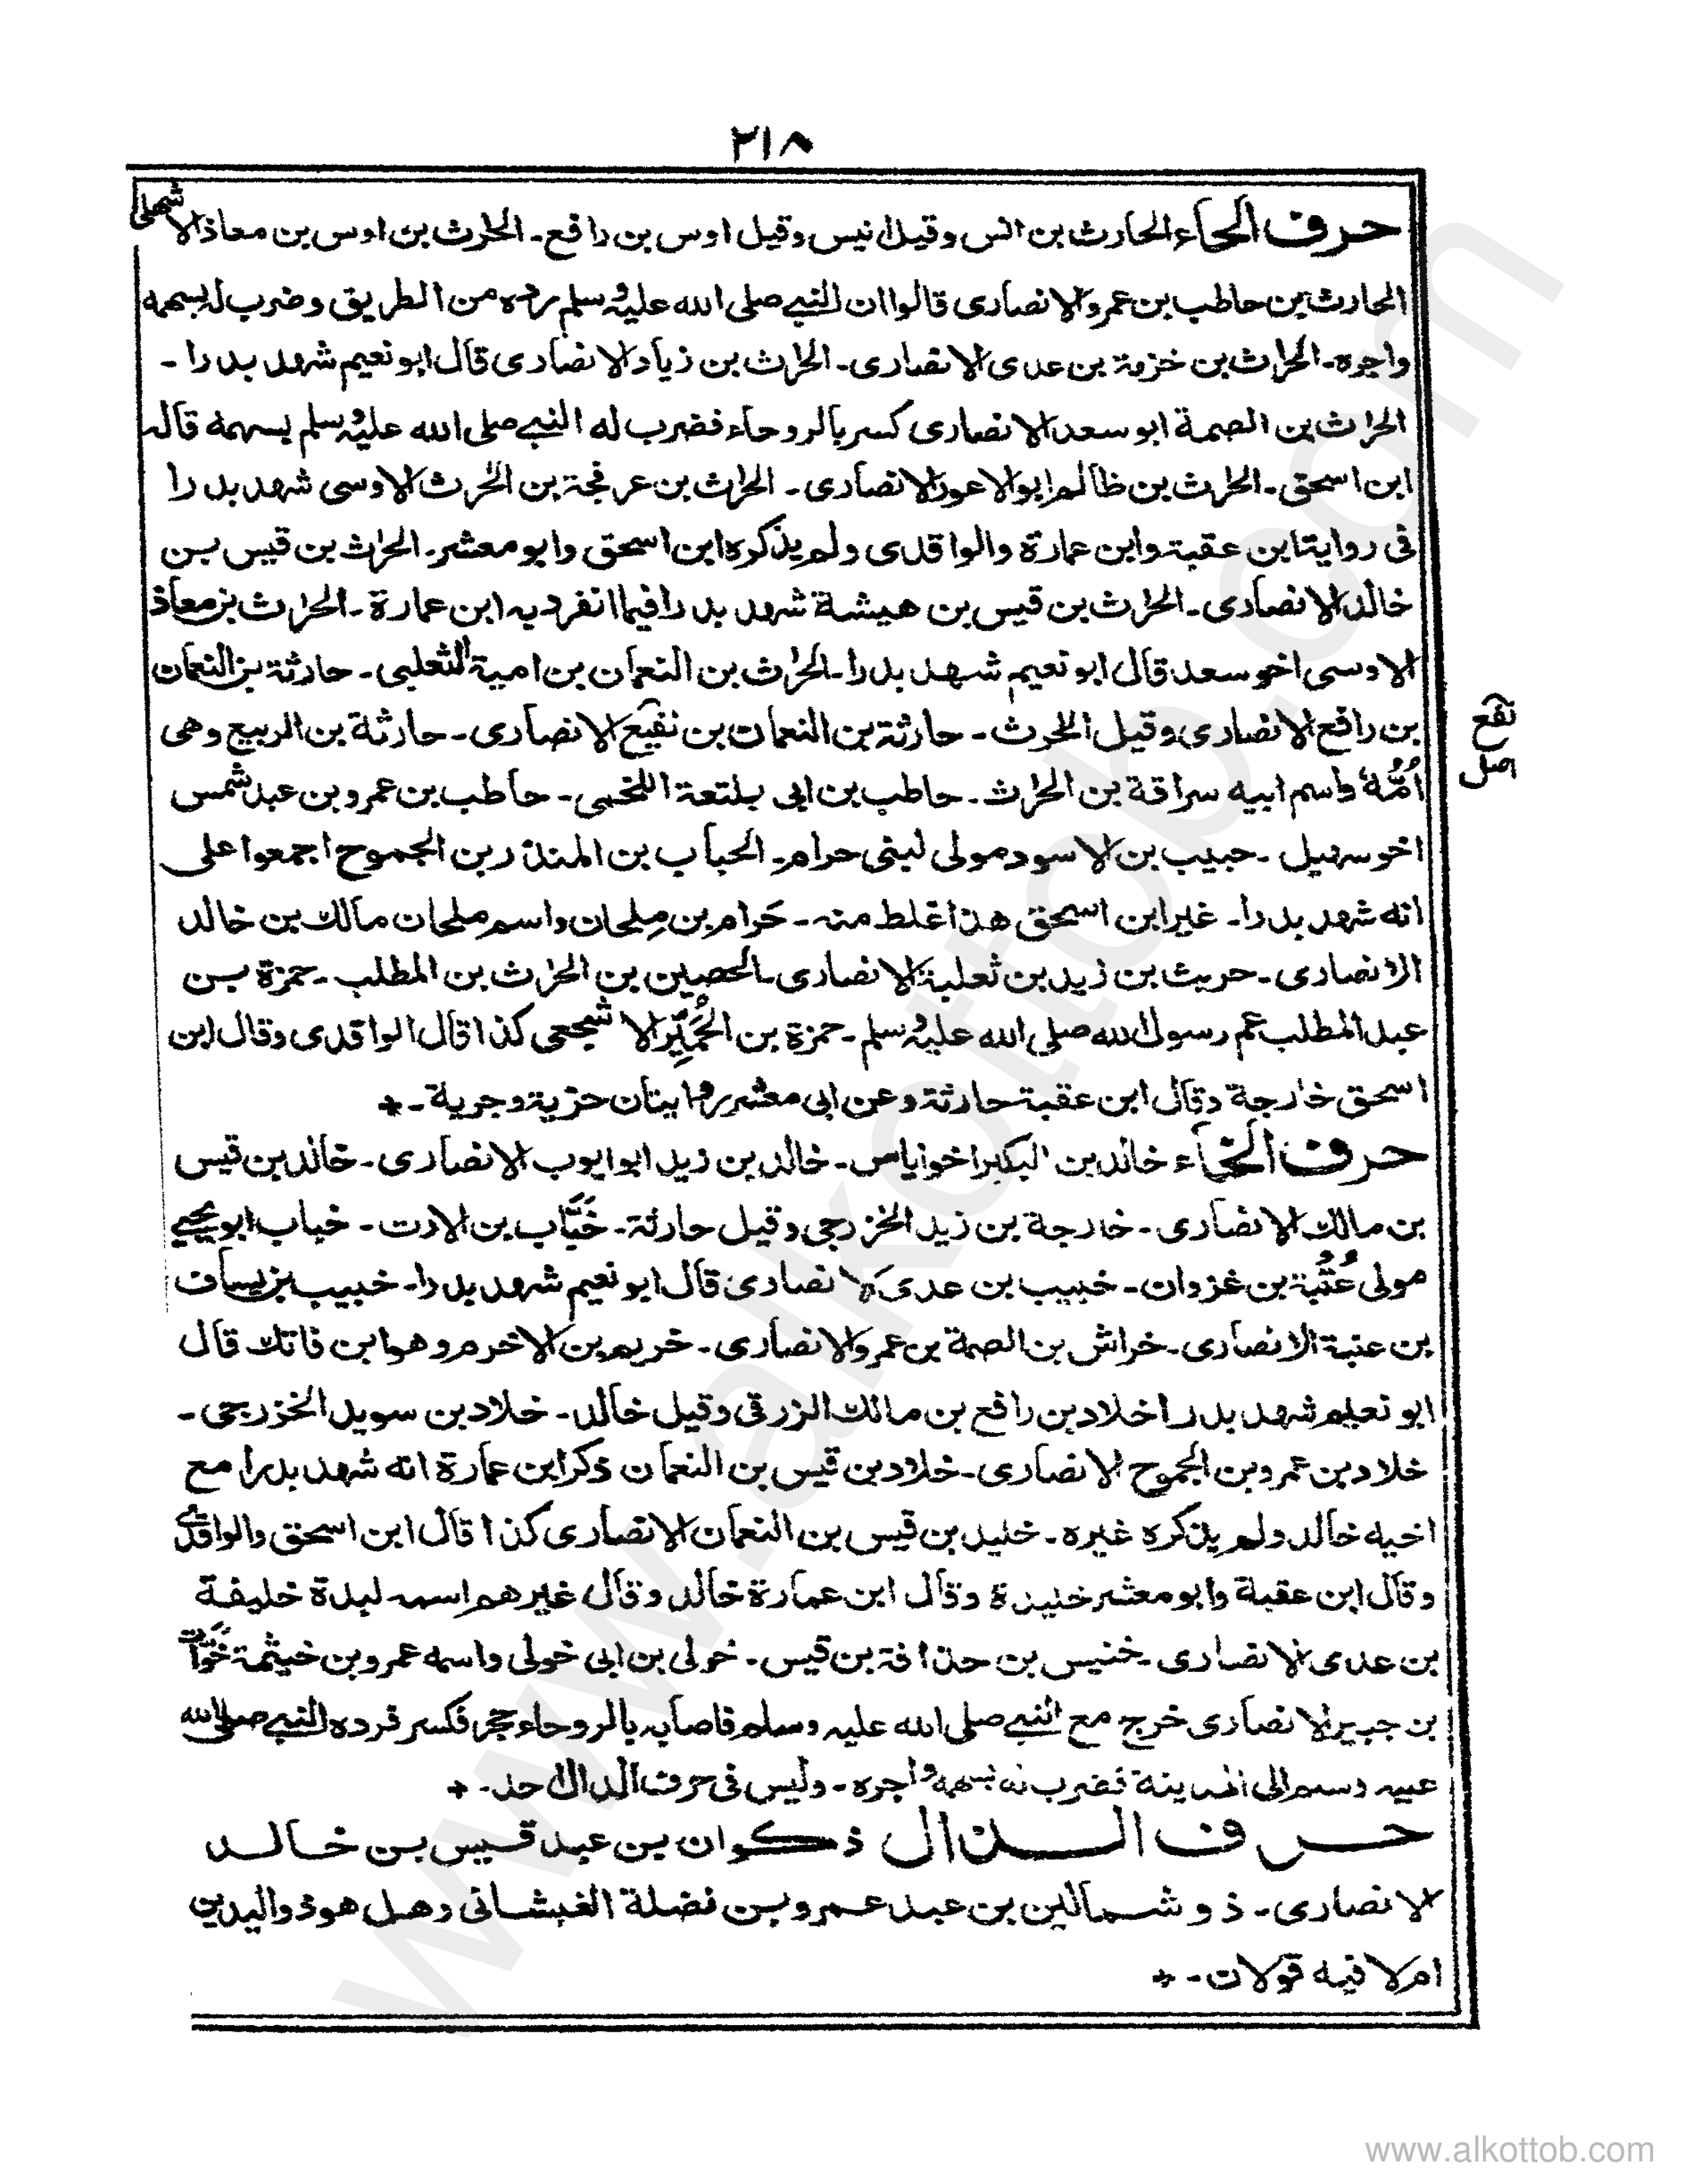 ٢١٨
حرف الحاء الحارث بن انس وقيل انيس وقيل اوس بن رافع۔ الحرث بن اوس بن معاذ الاشهلى
الحارث بن حاطب بن عمرو الانصارى قالوا ان النبي صلى الله عليه وسلم رده من الطريق وضرب له بسهمه
واجره۔ الحرث بن خزمة بن عدى الانصارى۔ الحرث بن زياد الانصارى قال ابو نعيم شهد بدرا ۔
الحرث بن الصمة ابو سعد الانصارى كسر بالروحاء فضرب له النبي صلى الله عليه وسلم بسهمه قاله
ابن اسحق۔ الحرث بن ظالم ابو الاعور الانصارى ۔ الحرث بن عرفجة بن الحرث الاوسى شهد بدرا
فى رواية ابن عقبة وابن عمارة والواقدى ولم يذكره ابن اسحق وابو معشر۔ الحرث بن قيس بن
خالد الانصارى۔ الحرث بن قيس بن هيشة شهد بدرا فيما انفرد به ابن عمارة ۔ الحرث بن معاذ
الاوسى اخو سعد قال ابو نعيم شهد بدرا۔ الحرث بن النعمان بن امية الثعلبى ۔ حارثة بن النعمان
بن رافع الانصارى وقيل الحرث ۔ حارثة بن النعمان بن نفيع الانصارى ۔ حارثة بن الربيع وهى
نقع
اُمُّهُ واسم ابيه سراقة بن الحرث ۔ حاطب بن ابى بلتعة اللخمى ۔ حاطب بن عمرو بن عبد شمس
اصل
اخو سهيل ۔ حبيب بن الاسود مولى لبنى حرام۔ الحباب بن المنذر بن الجموح اجمعوا على
انه شهد بدرا۔ غير ابن اسحق هذا غلط منه ۔ حَرام بن مِلحان واسم ملحان مالك بن خالد
الانصارى ۔ حريث بن زيد بن ثعلبة الانصارى۔ الحصين بن الحرث بن المطلب ۔ حمزة بن
عبد المطلب عم رسول الله صلى الله عليه وسلم ۔ حمزة بن الحُمَيِّر الاشجعى كذا قال الواقدى وقال ابن
اسحق خارجة وقال ابن عقبة حارثة وعن ابى معشر روايتان حزية وجرية ۔ *
حرف الخاء خالد بن البكير اخو اياس ۔ خالد بن زيد ابو ايوب الانصارى ۔ خالد بن قيس
بن مالك الانصارى ۔ خارجة بن زيد الخزرجى وقيل حارثة۔ خَبَّاب بن الارت ۔ خباب ابو يحيى
مولى عُتْبُة بن غزوان ۔ خبيب بن عدى الانصارى قال ابو نعيم شهد بدرا۔ خبيب بن يساف
بن عنبة الانصارى۔ خراش بن الصمة بن عمرو الانصارى ۔ خريم بن الاخرم وهو ابن فاتك قال
ابو نعيم شهد بدرا خلاد بن رافع بن مالك الزرقى وقيل خالد۔ خلاد بن سويد الخزرجى ۔
خلاد بن عمرو بن الجموح الانصارى ۔ خلاد بن قيس بن النعمان ذكر ابن عمارة انه شهد بدرا مع
اخيه خالد ولم يذكره غيره ۔ خليد بن قيس بن النعمان الانصارى كذا قال ابن اسحق والواقدى
وقال ابن عقبة وابو معشر خليدة وقال ابن عمارة خالد وقال غيرهم اسمه لبدة خليفة
بن عدى الانصارى ۔ خنيس بن حذافة بن قيس ۔ خولى بن ابى خولى واسمه عمرو بن خيثمة خَوَّات
بن جبير الانصارى خرج مع النبي صلى الله عليه وسلم فاصابه بالروحاء حجر فكسر فرده النبي صلى الله
عليه وسلم الى المدينة فضرب له بسهمه واجره ۔ وليس فى حرف الدال احد۔ *
حرف الذال ذكوان بن عبد قيس بن خالد
الانصارى ۔ ذو شمالين بن عبد عمرو بن نضلة الغبشانى وهل هو ذو اليدين
ام لا فيه قولان ۔ *
www.alkottob.com
www.alkottob.com